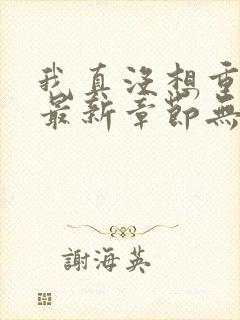 我真沒想重
最新章節無
謝海英